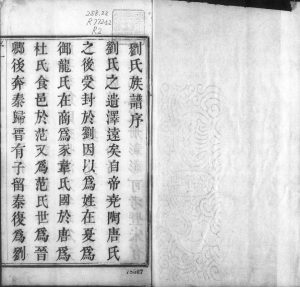 劉氏族譜序
劉氏之遺澤遠矣自帝堯陶唐氏
之後受封於劉因以為姓在夏為
御龍氏在商為豕韋氏國於唐為
杜氏食邑於范又為范氏世為晉
卿後奔秦歸晉有子留秦復為劉